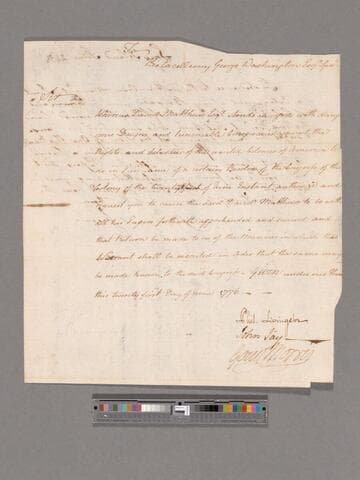 To
His Excellency George Washington Esqr
Sir
Whereas David Matthews Esqr stands charged with dangerous
Designs and treasonable Conspiracies against the
Rights and Liberties of the united Colonies of America We
do in of a certain Resolution of the Congress of the
Colony of the authorize and
request you to cause the said David Matthews to be with
all his Papers forthwith apprehended and secured and
that Return be made to us of the Manner in which this
Warrant shall be executed in order that the same may
be made known to the said Congress. Given under our Hands
this twenty first Day of June 1776
Phil. Livingston
John Jay
Gouvr Morris